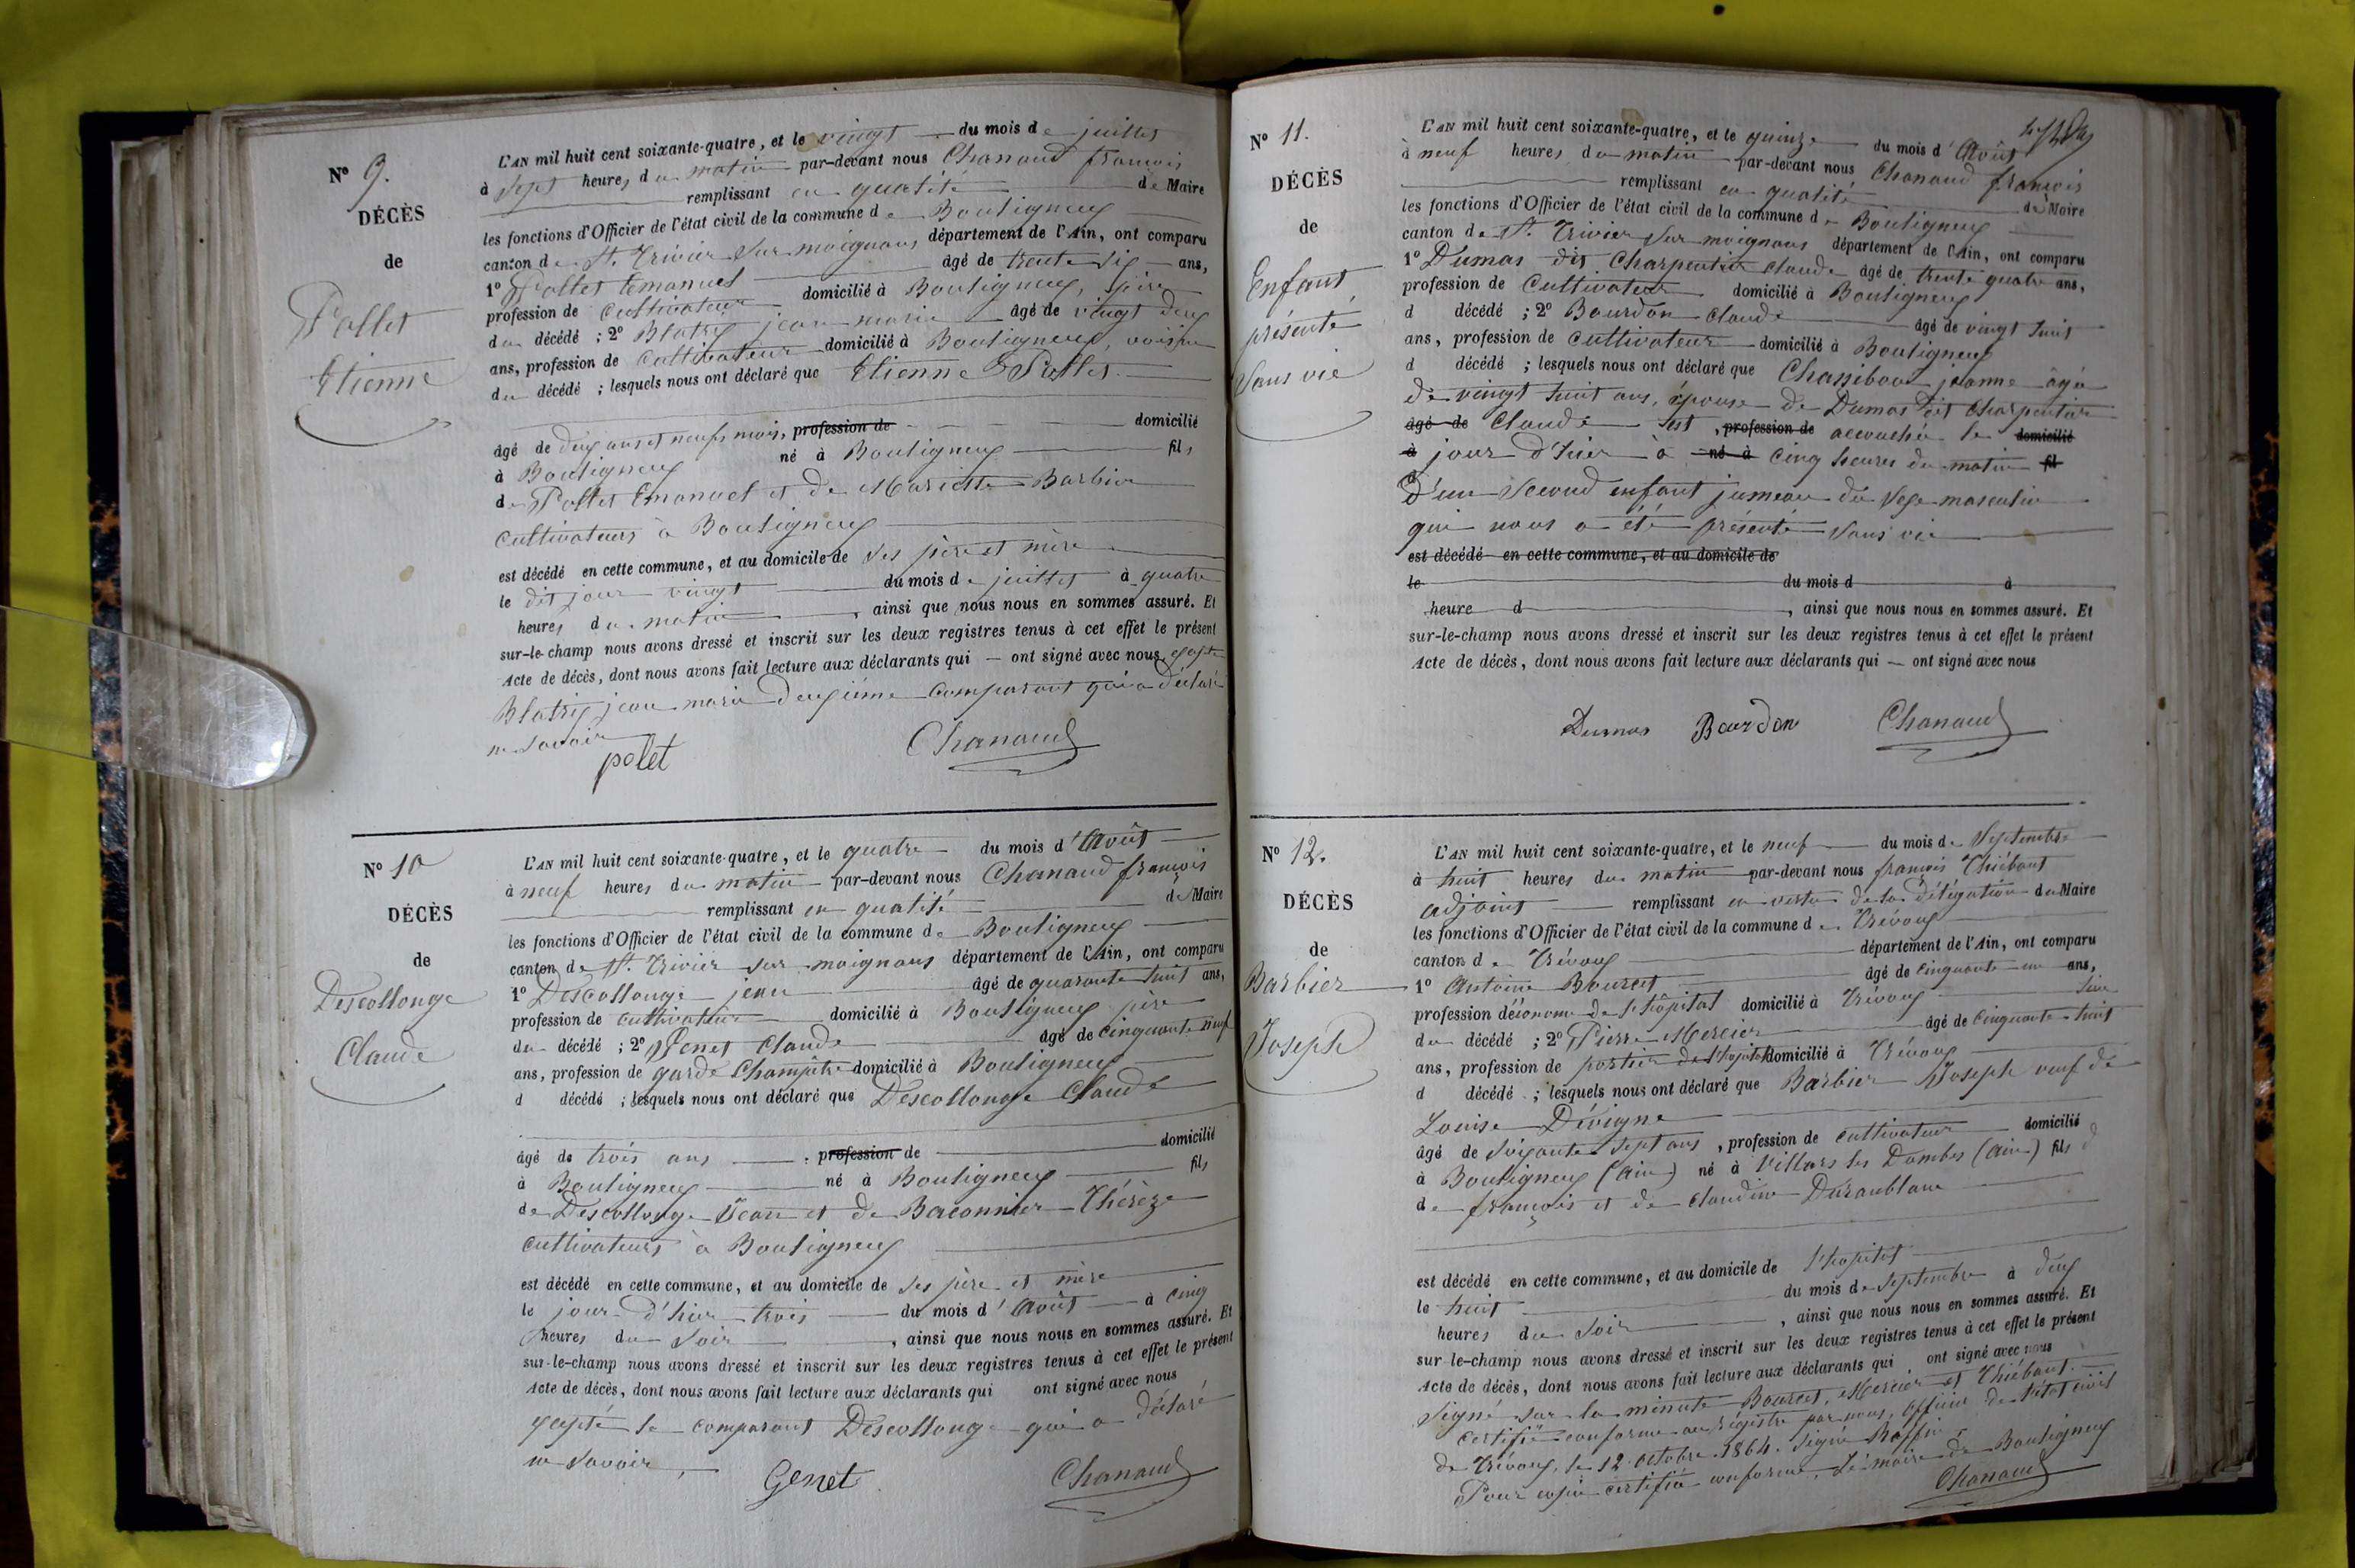 N° 9.
DÉCÈS
de
Pollet
Etienne
L'AN mil huit cent soixante-quatre, et le vingt du mois de juillet
à sept heures du matin par-devant nous Chanaud françois
remplissant en qualité de Maire
les fonctions d'Officier de l'état civil de la commune de Bouligneux
canton de St. Trivier sur moignans département de l'Ain, ont comparu
1° Pollet Emanuel âgé de trente six ans,
profession de Cultivateur domicilié à Bouligneux, père
du décédé ; 2° Blatrix jean marie âgé de vingt deux
ans, profession de Cultivateur domicilié à Bouligneux, voisin
du décédé ; lesquels nous ont déclaré que Etienne Pollet
âgé de deux ans et neufs mois, profession de domicilié
à Bouligneux né à Bouligneux fils
de Pollet Emanuel et de Mariette Barbier
Cultivateurs à Bouligneux
est décédé en cette commune, et au domicile de ses père et mère
le dit jour vingt du mois de juillet à quatre
heures du matin, ainsi que nous nous en sommes assuré. Et
sur-le-champ nous avons dressé et inscrit sur les deux registres tenus à cet effet le présent
Acte de décès, dont nous avons fait lecture aux déclarants qui — ont signé avec nous, excepté
Blatrix jean marie deuxième comparant qui a déclaré
ne savoir
polet Chanaud
N° 10
DÉCÈS
de
Descollonge
Claude
L'AN mil huit cent soixante-quatre, et le quatre du mois d'Août
à neuf heures du matin par-devant nous Chanaud françois
remplissant en qualité de Maire
les fonctions d'Officier de l'état civil de la commune de Bouligneux
canton de St. Trivier sur moignans département de l'Ain, ont comparu
1° Descollonge jean âgé de quarante huit ans,
profession de Cultivateur domicilié à Bouligneux père
du décédé ; 2° Genet Claude âgé de Cinquante neuf
ans, profession de garde Champêtre domicilié à Bouligneux
d décédé ; lesquels nous ont déclaré que Descollonge Claude
âgé de trois ans, profession de domicilié
à Bouligneux né à Bouligneux fils
de Descollonge Jean et de Baconnier Thérèze
Cultivateurs à Bouligneux
est décédé en cette commune, et au domicile de ses père et mère
le jour d'hier trois du mois d'Août à cinq
heures du soir, ainsi que nous nous en sommes assuré. Et
sur-le-champ nous avons dressé et inscrit sur les deux registres tenus à cet effet le présent
Acte de décès, dont nous avons fait lecture aux déclarants qui ont signé avec nous
excepté le comparant Descollonge qui a déclaré
ne savoir,
Genet Chanaud
N° 11.
DÉCÈS
de
Enfant
présenté
Sans vie
L'AN mil huit cent soixante-quatre, et le quinze du mois d'Août
à neuf heures du matin par-devant nous Chanaud françois
remplissant en qualité de Maire
les fonctions d'Officier de l'état civil de la commune de Bouligneux
canton de St. Trivier sur moignans département de l'Ain, ont comparu
1° Dumas dit Charpentier Claude âgé de trente quatre ans,
profession de Cultivateur domicilié à Bouligneux
d décédé ; 2° Bourdon Claude âgé de vingt huit
ans, profession de Cultivateur domicilié à Bouligneux
d décédé ; lesquels nous ont déclaré que Chassiboud jeanne âgée
de vingt huit ans, épouse de Dumas dit Charpentier
âgé de Claude est, profession de accouchée le domicilié
à jour d'hier à né à cinq heures du matin fil
d'un second enfant jumeau du sexe masculin
qui nous a été présenté sans vie
est décédé en cette commune, et au domicile de
le du mois d à
heure d, ainsi que nous nous en sommes assuré. Et
sur-le-champ nous avons dressé et inscrit sur les deux registres tenus à cet effet le présent
Acte de décès, dont nous avons fait lecture aux déclarants qui — ont signé avec nous
Dumas Bourdon Chanaud
N° 12.
DÉCÈS
de
Barbier
Joseph
L'AN mil huit cent soixante-quatre, et le neuf du mois de Septembre
à huit heures du matin par-devant nous françois Thiébaut
adjoint remplissant en vertu de la délégation du Maire
les fonctions d'Officier de l'état civil de la commune de Trévoux
canton de Trévoux département de l'Ain, ont comparu
1° Antoine Bourcet âgé de cinquante un ans,
profession d'économe de l'hôpital domicilié à Trévoux
du décédé ; 2° Pierre Mercier âgé de Cinquante huit
ans, profession de portier de l'hôpital domicilié à Trévoux
d décédé ; lesquels nous ont déclaré que Barbier Joseph veuf de
Louise Dévigne
âgé de soixante sept ans, profession de cultivateur domicilié
à Bouligneux (ain) né à Villars les Dombes (ain) fils
de françois et de claudine Duraublanc
est décédé en cette commune, et au domicile de l'hopital
le huit du mois de septembre à deux
heures du soir, ainsi que nous nous en sommes assuré. Et
sur-le-champ nous avons dressé et inscrit sur les deux registres tenus à cet effet le présent
Acte de décès, dont nous avons fait lecture aux déclarants qui ont signé avec nous
Signé sur la minute Bourcet, Mercier et Thiébaut.
Certifié conforme au régistre par nous, officier de l'état civil
de Trévoux, le 12 octobre 1864. Signé Raffin
Pour copie certifiée conforme, Le maire de Bouligneux
Chanaud